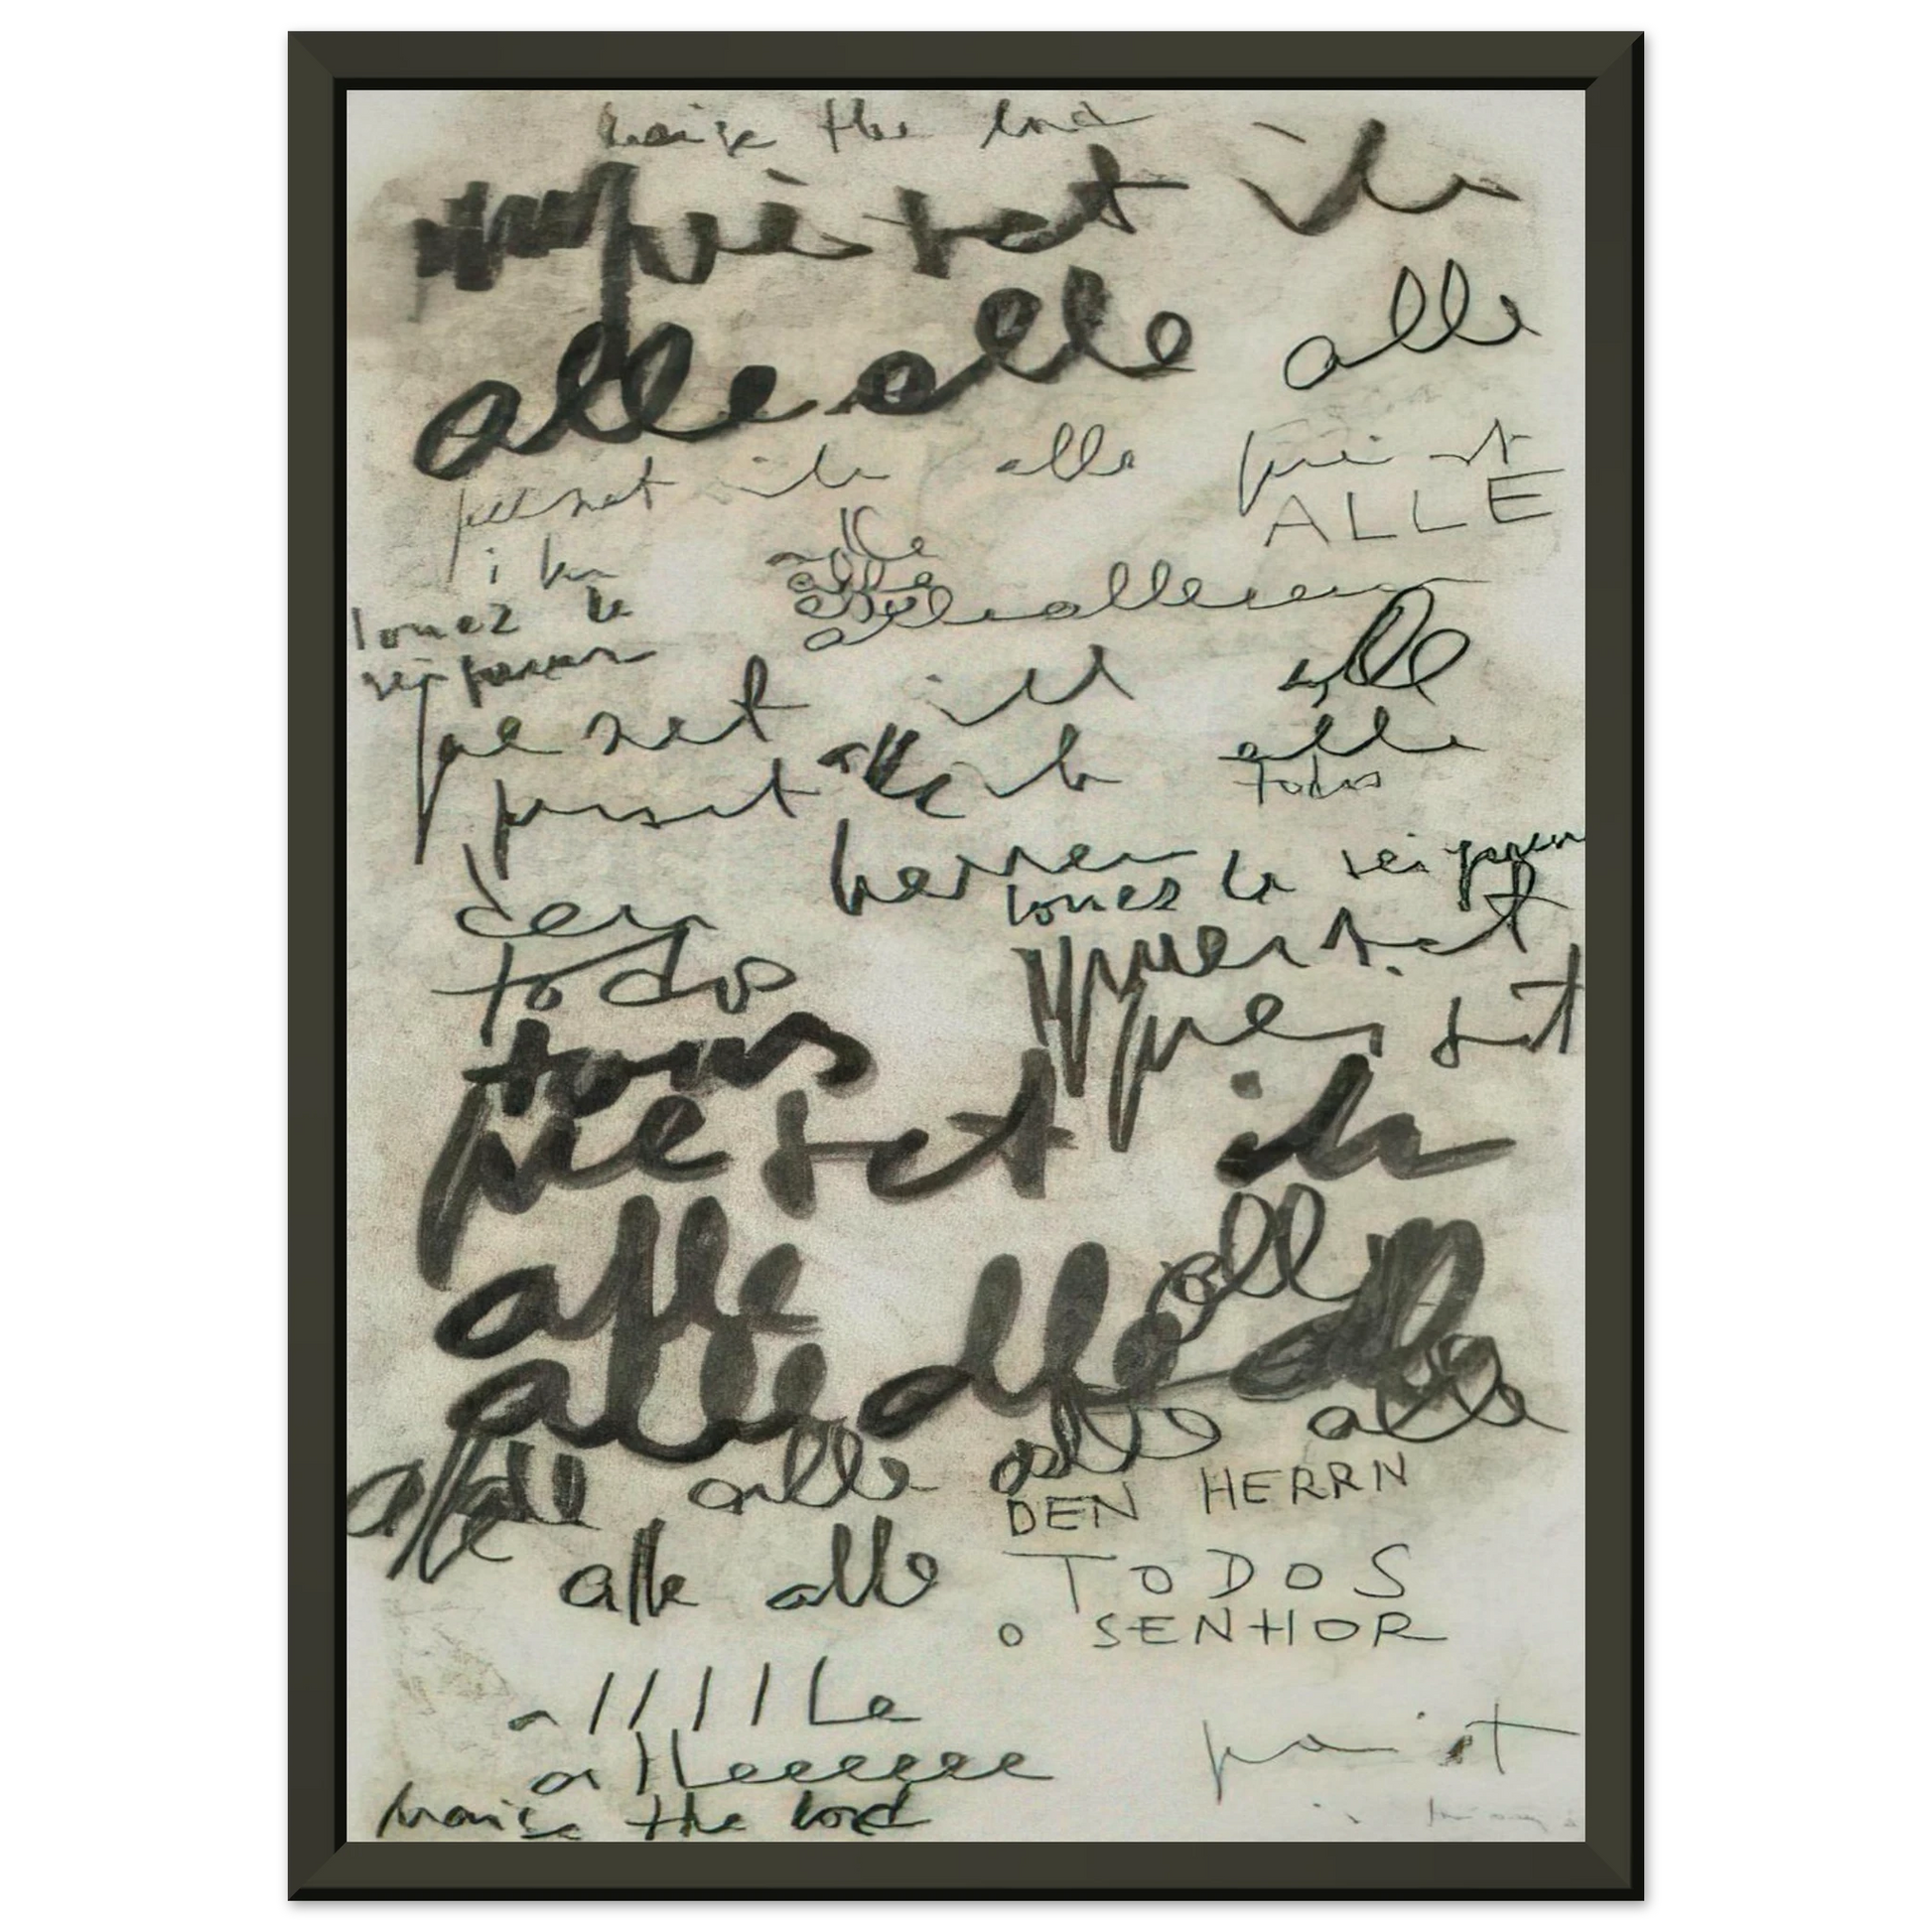 praise the lord
preiset ihn
alle alle alle
preiset ihn alle preist
ALLE
ihn alle
louez le alle alle
seigneur alle
preiset ihn alle
preiset alle ihn alle
todos
herren le seigneur
den louez
todos preiset
preiset
tous
preiset ihn
alle alle
alle alle alle
alle alle alle alle
DEN HERRN
alle alle TODOS
O SENHOR
allllle
alleeeeeee preist
praise the lord